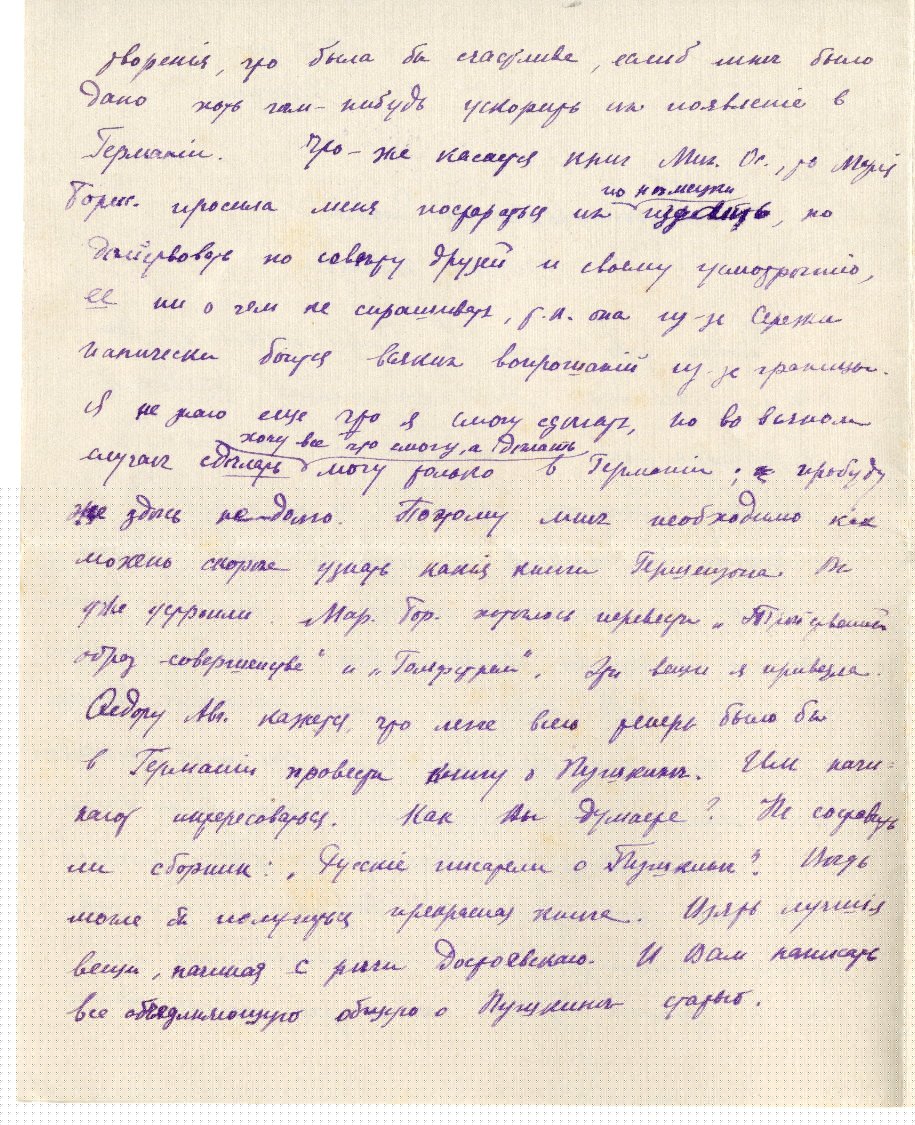 творенія, что была бы счастлива, еслиб мнѣ было
дано хоть чѣм-нибудь ускорить их появленіе в
Германіи. Что-же касается книг Мих. Ос., то Марія
Борис. просила меня постараться их издать, но
по нѣмецки
дѣйствовать по совѣту друзей и своему усмотрѣнію,
ее ни о чем не спрашивать, т.к. она из-за Сережи
панически боится всяких вопрошаній из-за границы.
Я не знаю еще что я смогу сдѣлать, но во всяком
хочу все что смогу, а дѣлать
случаѣ сдѣлать могу только в Германіи; пробуду
же здѣсь не долго. Поэтому мнѣ необходимо как
можень скорѣе узнать какія книги Гершензона Вы
уже устроили. Мар. Бор. хотѣлось перевести „Тройственный
образ совершенства“ и „Гольфстрем“. Эти вещи я привезла.
Федору Авг. кажется, что легче всего теперь было бы
в Германіи провести книгу о Пушкинѣ. Им начи-
нают интересоваться. Как Вы думаете? Не составить
ли сборник: „Русскіе писатели о Пушкинѣ“? Вѣдь
могла б получиться прекрасная книга. Взять лучшія
вещи, начиная с рѣчи Достоевскаго. И Вам написать
все объединяющую общую о Пушкинѣ статью.